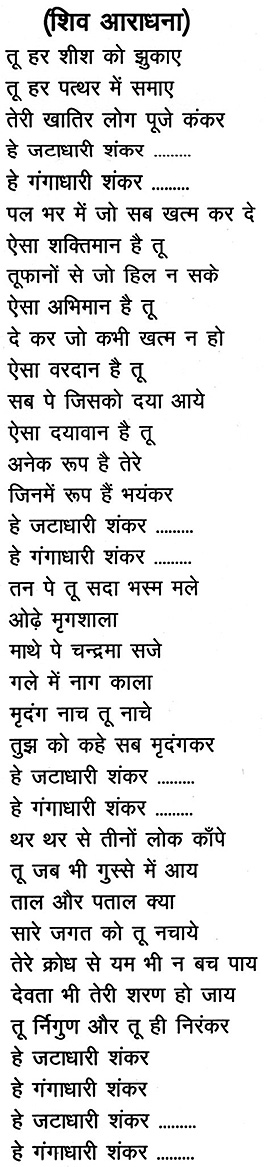 (शिव आराधना)
तू हर शीश को झुकाए
तू हर पत्थर में समाए
तेरी खातिर लोग पूजे कंकर
हे जटाधारी शंकर .........
हे गंगाधारी शंकर .........
पल भर में जो सब खत्म कर दे
ऐसा शक्तिमान है तू
तूफानों से जो हिल न सके
ऐसा अभिमान है तू
दे कर जो कभी खत्म न हो
ऐसा वरदान है तू
सब पे जिसको दया आये
ऐसा दयावान है तू
अनेक रूप है तेरे
जिनमें रूप हैं भयंकर
हे जटाधारी शंकर .........
हे गंगाधारी शंकर .........
तन पे तू सदा भस्म मले
ओढ़े मृगशाला
माथे पे चन्द्रमा सजे
गले में नाग काला
मृदंग नाच तू नाचे
तुझ को कहे सब मृदंगकर
हे जटाधारी शंकर .........
हे गंगाधारी शंकर .........
थर थर से तीनों लोक काँपे
तू जब भी गुस्से में आय
ताल और पताल क्या
सारे जगत को तू नचाये
तेरे क्रोध से यम भी न बच पाय
देवता भी तेरी शरण हो जाय
तू र्निगुण और तू ही निरंकर
हे जटाधारी शंकर
हे गंगाधारी शंकर
हे जटाधारी शंकर .........
हे गंगाधारी शंकर .........